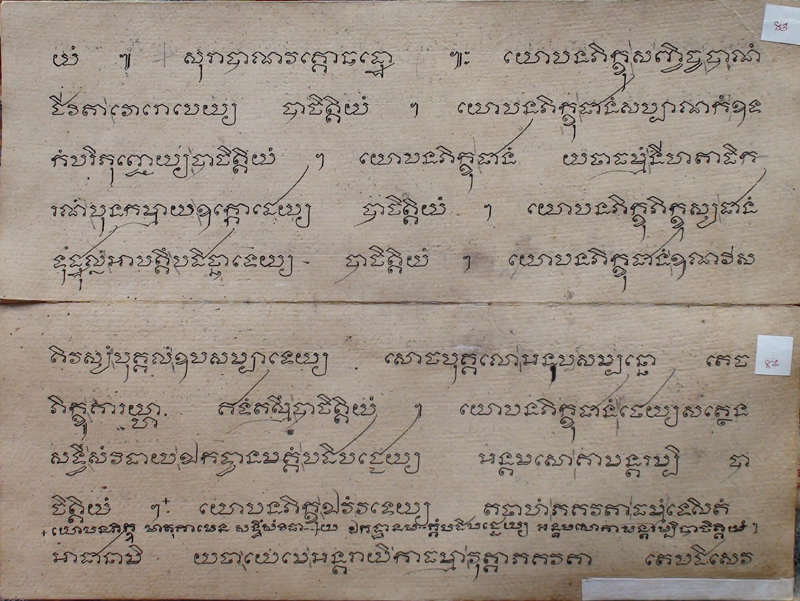 ៨៣
យំ ៕ សុរាបាណវគ្គោឆដ្ឋោ ៕ៈ យោបនភិក្ខុសញ្ចិច្ចបាណំ
ជីវិតាវោរោបេយ្យ បាចិត្តិយំ ។ យោបនភិក្ខុជានំសប្បាណកំឧទ
កំបរិភុញ្ជេយ្យបាចិត្តិយំ ។ យោបនភិក្ខុជានំ យថាធម្មំនីហតាធិក
រណំបុនកម្មាយឧក្កោដេយ្យ បាចិត្តិយំ ។ យោបនភិក្ខុភិក្ខុស្សជានំ
ទុដ្ឋុល្លំអាបត្តឹបដិច្ឆាទេយ្យ - បាចិត្តិយំ ។ យោបនភិក្ខុជានំឩនវីស
៨៤
តិវស្សំបុគ្គលំឧបសម្បាទេយ្យ. សោចបុគ្គលោអនុបសម្បន្នោ តេច
ភិក្ខុគារយ្ហា. ឥទំតស្មឹបាចិត្តិយំ ។ យោបនភិក្ខុជានំថេយ្យសត្ថេន
សទ្ធឹសំវិធាយឯកទ្ធានមគ្គំបដិបជ្ជេយ្យ អន្តមសោគាមន្តរម្បិ បា
ចិត្តិយំ ។+ យោបនភិក្ខុឯវំវទេយ្យ តថាហំភគវតាធម្មំទេសិតំ
+ យោបនភិក្ខុ មាតុគាមេន សទ្ធឹសំវិធាយ ឯកទ្ធានមគ្គំបដិបជ្ជេយ្យ អន្តមសោគាមន្តរម្បិបាចិត្តិយំ ។
អាជានាមិ យថាយេមេអន្តរាយិកាធម្មាវុត្តាភគវតា តេបដិសេវ